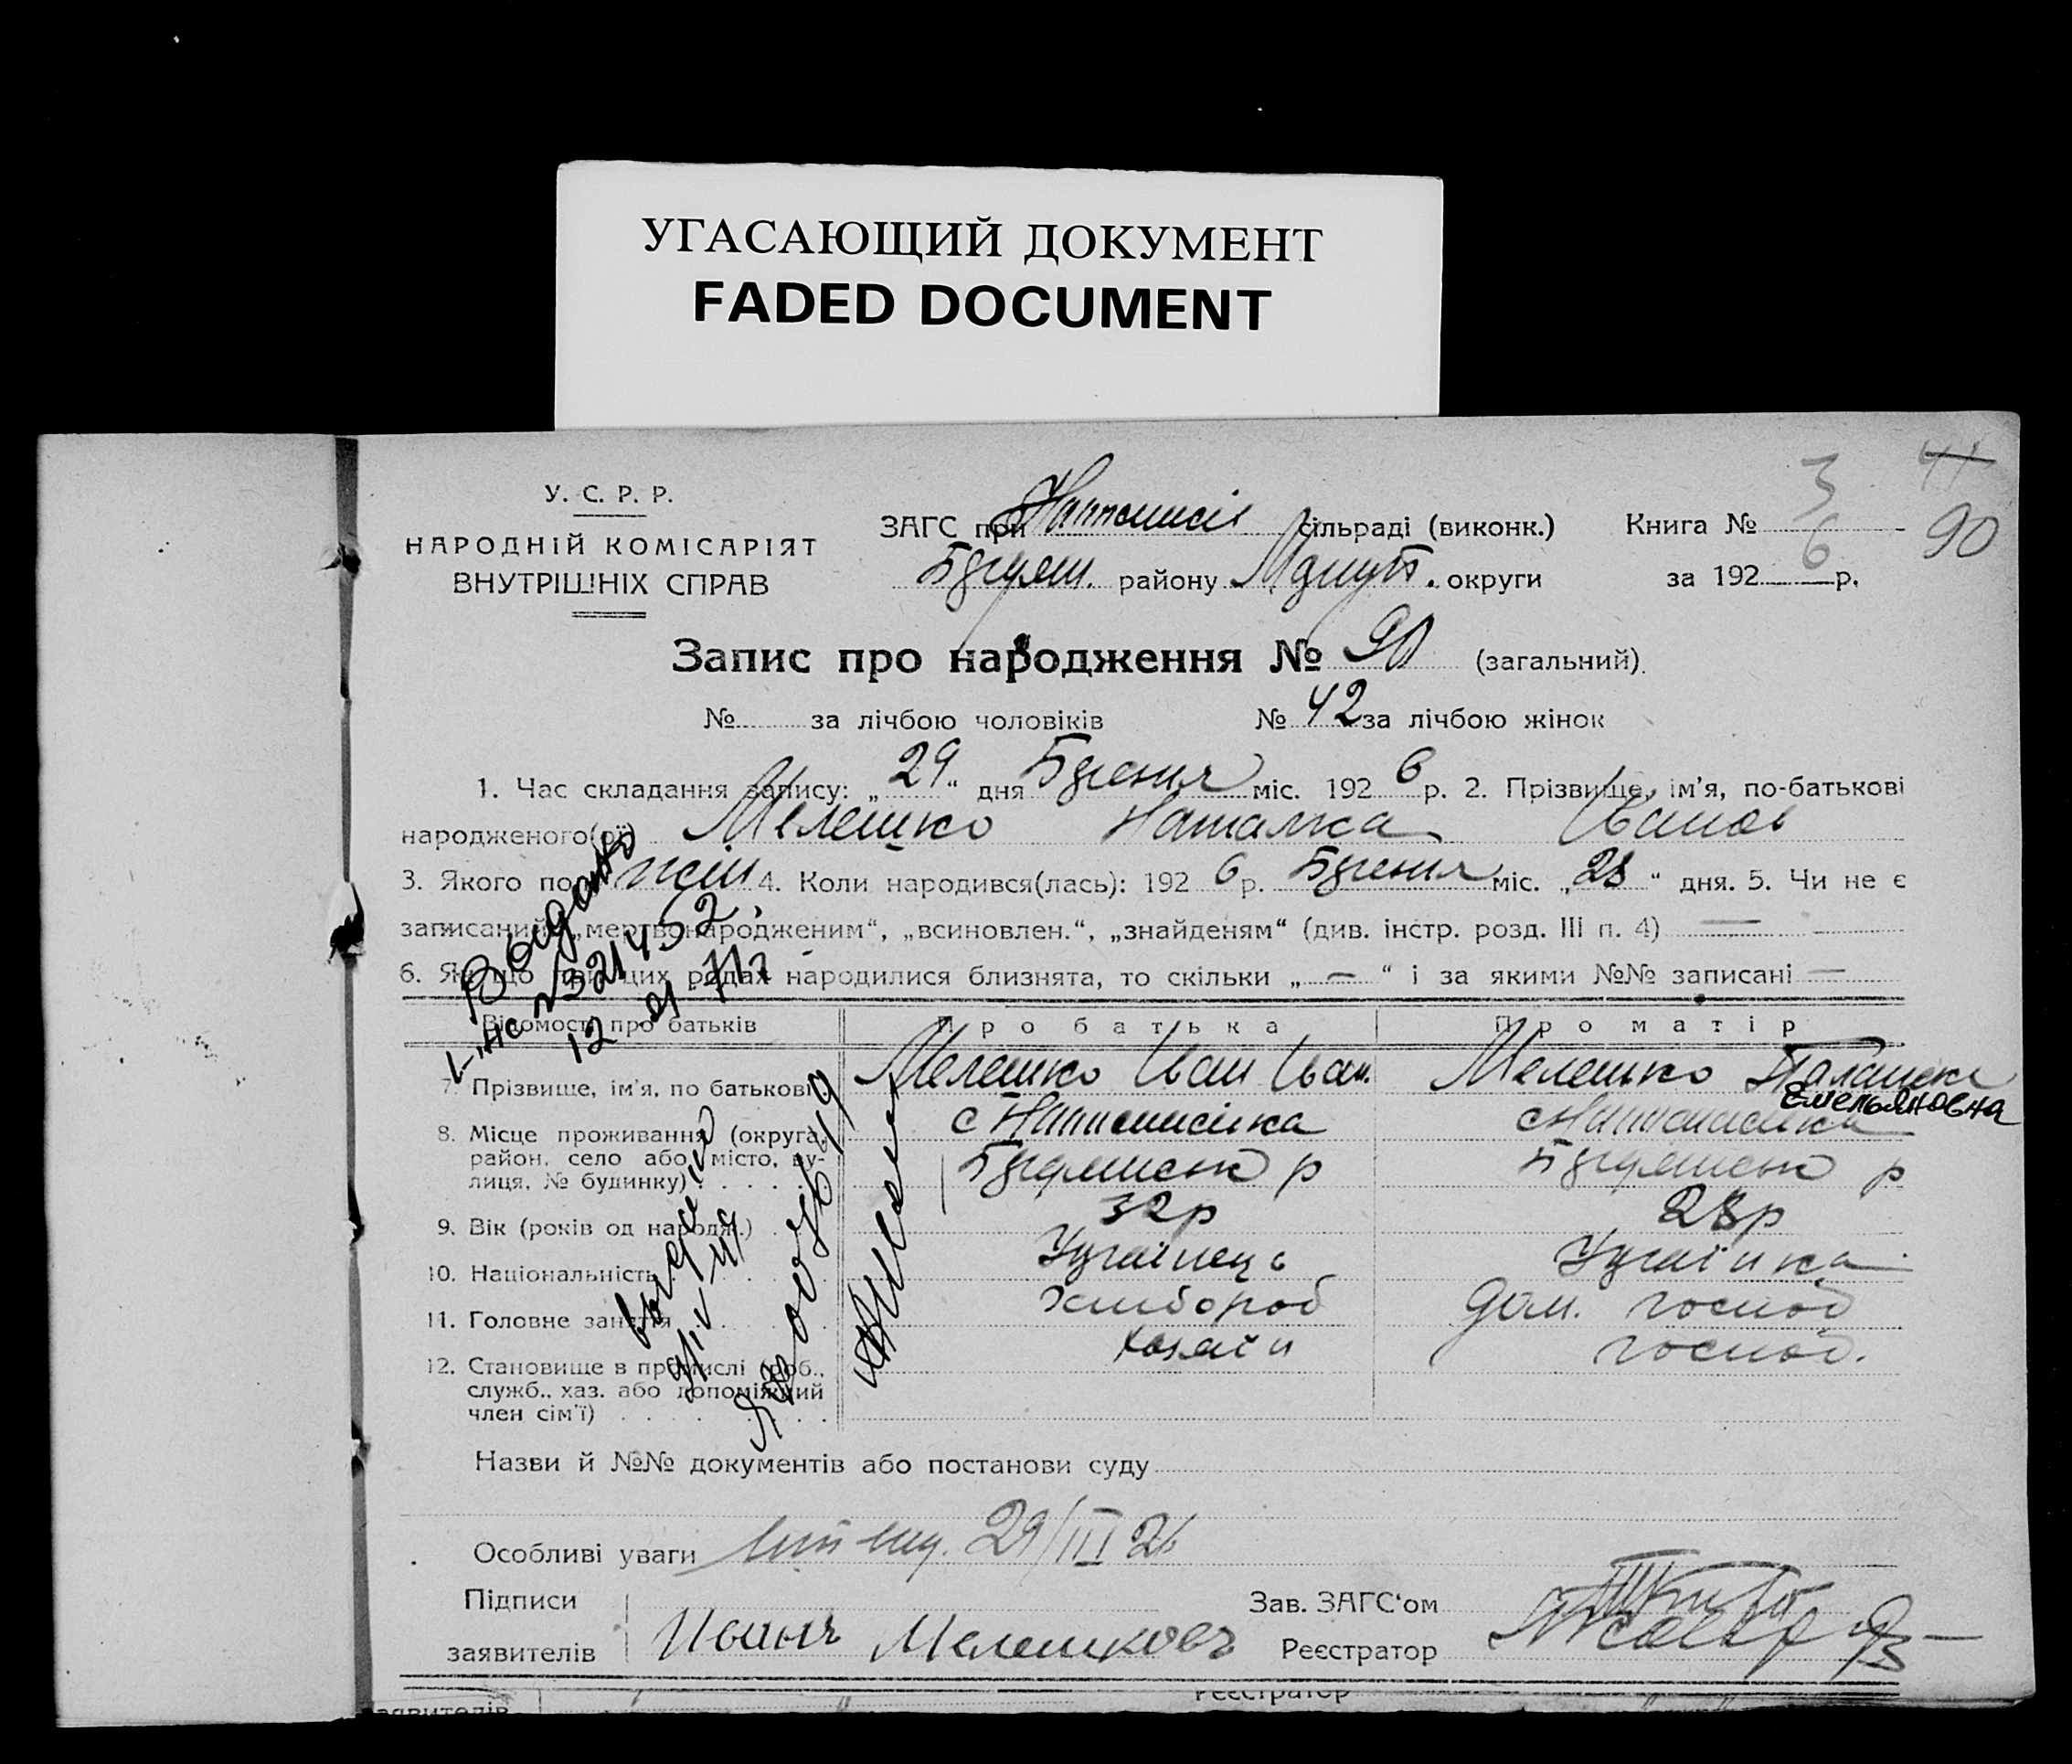 УГАСАЮЩИЙ ДОКУМЕНТ
FADED DOCUMENT
У. С. Р. Р.
НАРОДНІЙ КОМІСАРІЯТ
ВНУТРІШНІХ СПРАВ
ЗАГС при сільраді (виконк.)
району округи
Книга № 3
за 192 6 р.
41
90
Запис про народження № 90 (загальний).
№ за лічбою чоловіків № 42 за лічбою жінок
1. Час складання запису: „ 29 “ дня Березня міс. 192 6 р. 2. Прізвище, ім'я, по-батькові
народженого(ої) Мелешко Наталка Іванов
3. Якого полу жін 4. Коли народився(лась): 192 6 р. Березня міс. „ 28 “ дня. 5. Чи не є
записаний „мертвонародженим“, „всиновлен.“, „знайденям“ (див. інстр. розд. III п. 4) —
6. Якщо при цих родах народилися близнята, то скільки „ — “ і за якими №№ записані —
Відомості про батьків Про батька Про матір
7. Прізвище, ім'я, по батькові Мелешко Іван Іван. Мелешко Палажка
Емельяновна
8. Місце проживання (округа,
район, село або місто, ву-
лиця, № будинку)
9. Вік (років од народж.) 32 р 28 р
10. Національність Українець Українка
11. Головне заняття Хлібороб дом. господ
12. Становище в промислі (роб.,
служб., хаз. або допоміжний
член сім'ї)
хазяїн господ.
Видано
321452
12
Назви й №№ документів або постанови суду
Особливі уваги 29/III 26
Підписи
заявителів Иванъ Мелешковъ
Зав. ЗАГС'ом
Реєстратор
Реєстратор
заявителів